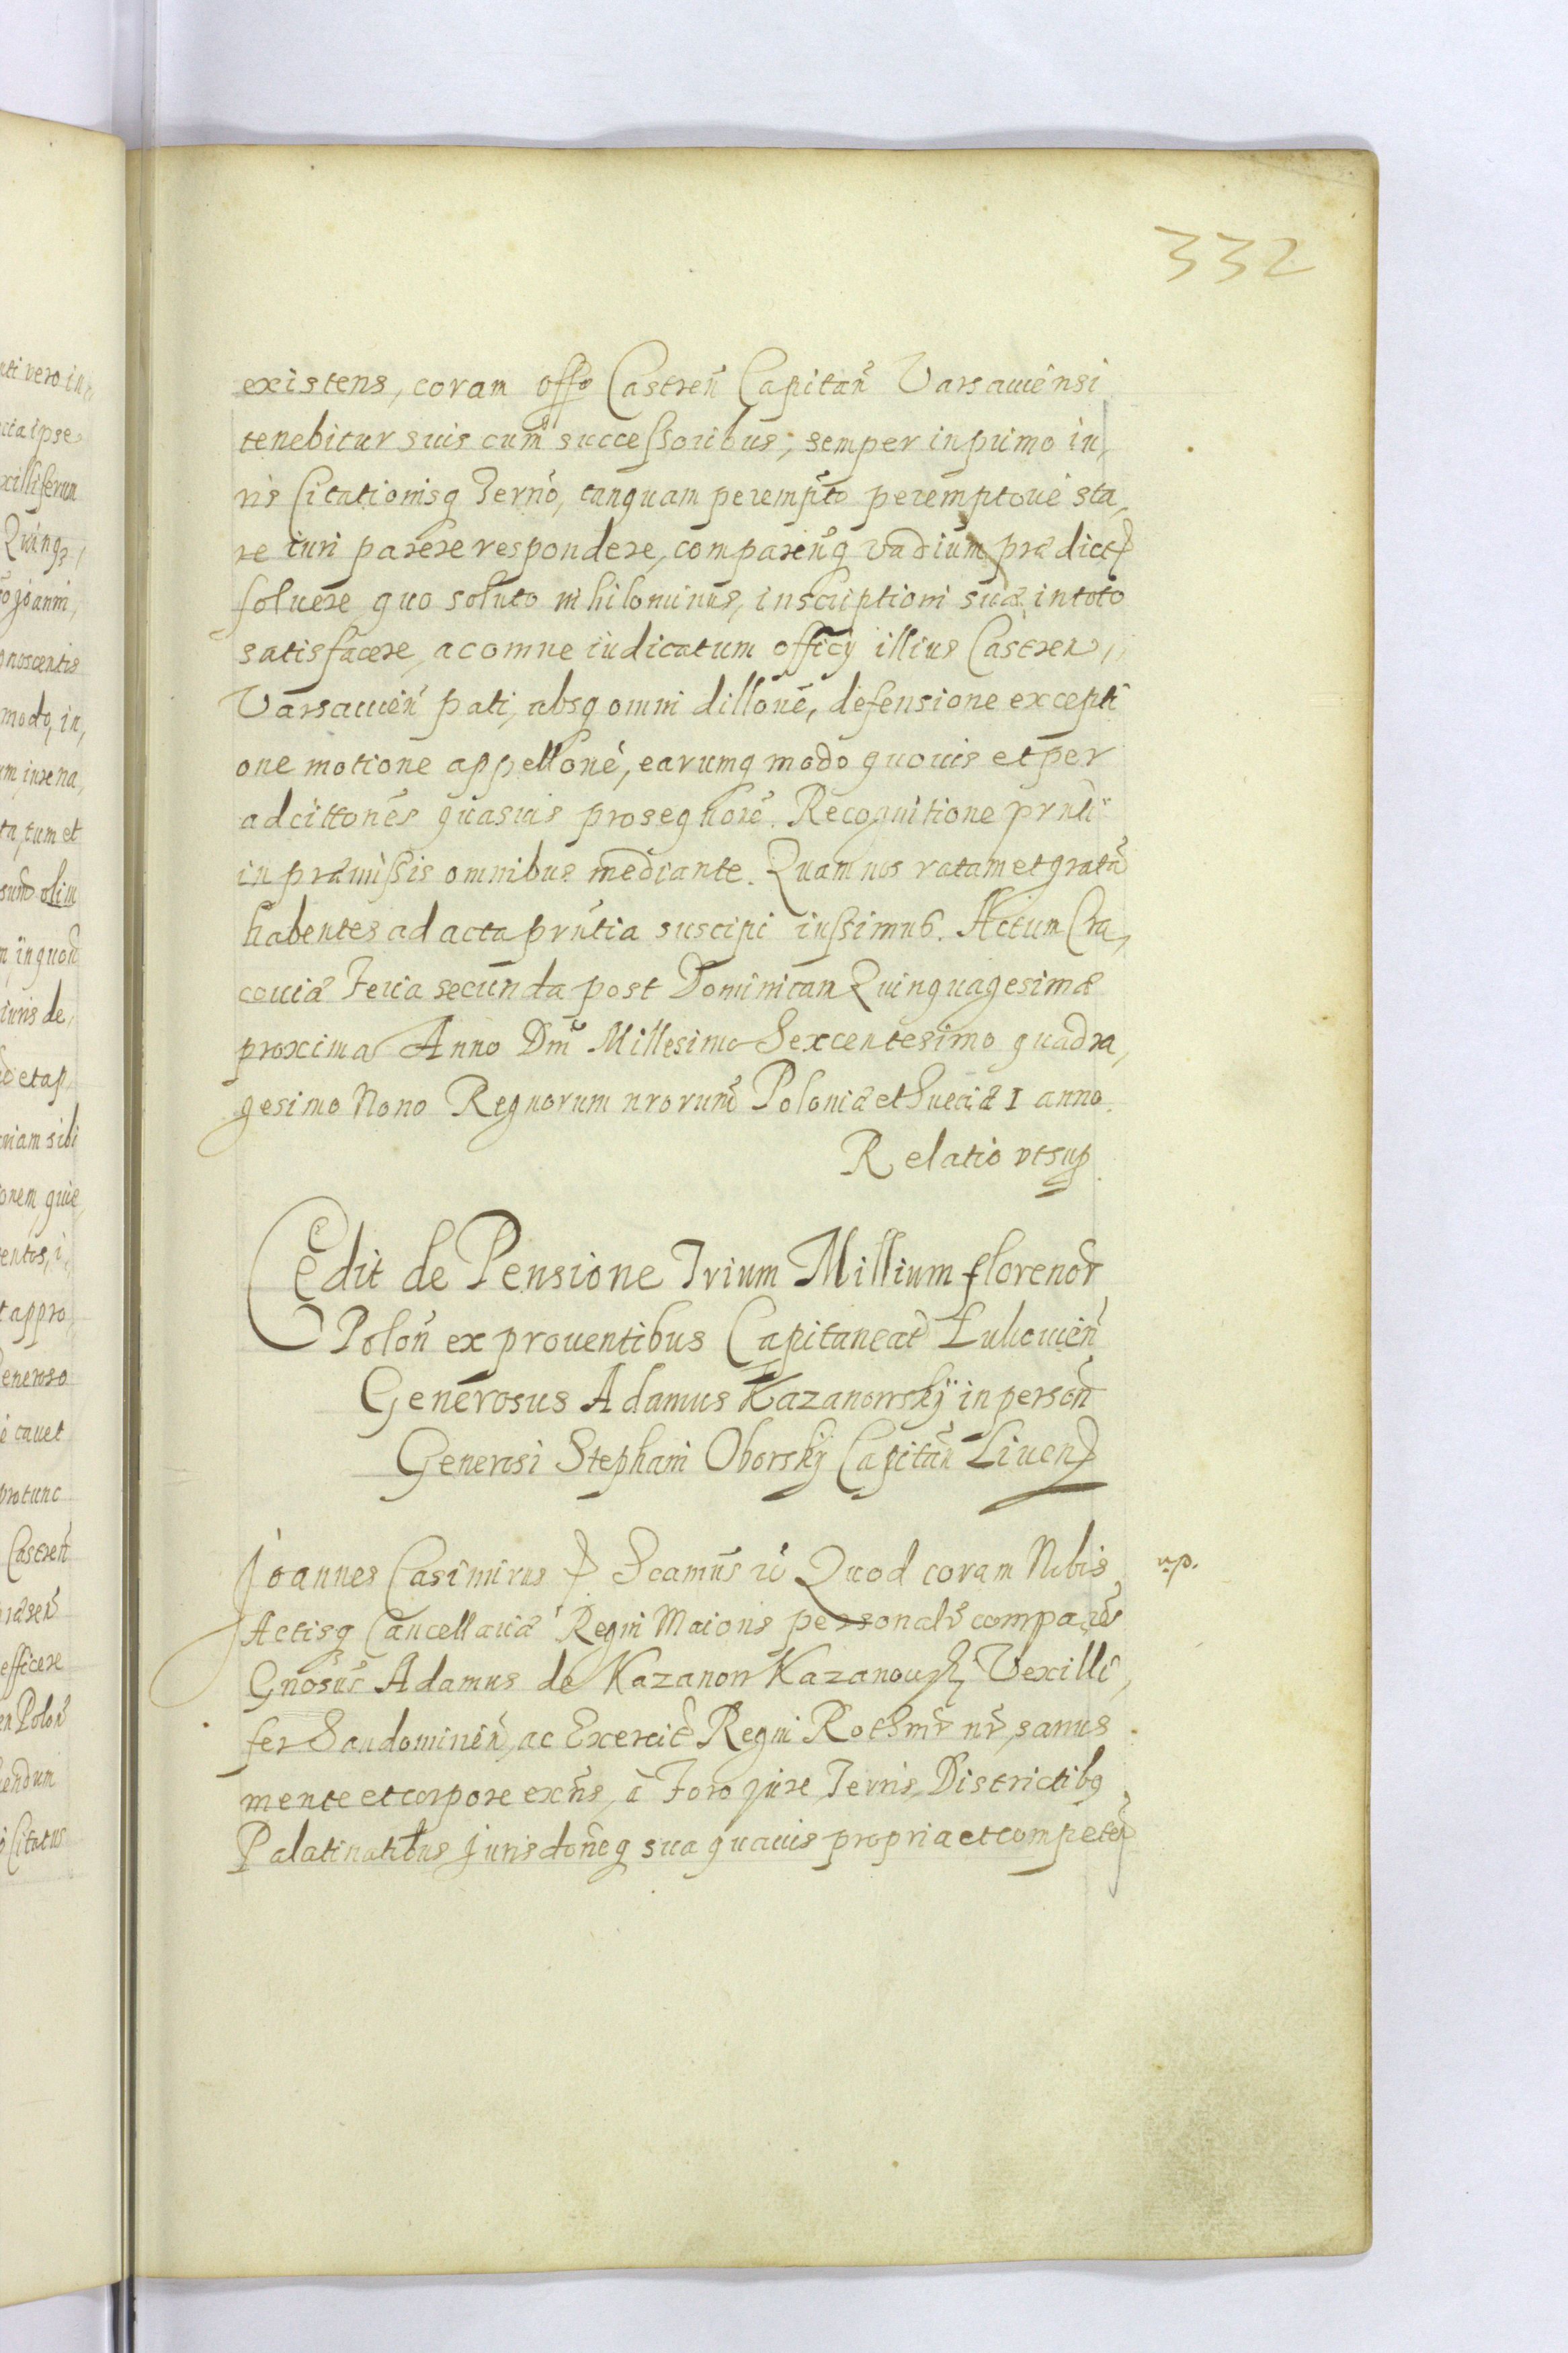 332
existens, coram offo Castren̄ Capitan̄ Varsauiēnsi
tenebitur suis cum successoribus, semper in primo iu,
ris Citationisq̨ Termō, tanquam perempt̄o peremptorie sta,
re iuri parere respondere, compareñq̨ vadium prædict
soluere quo soluto nihilominus, inscriptioni suæ in toto
satisfacere, ac omne iudicatum officij illius Castren,
Varsauien̄ pati, absq̨ omni dillōne, defensione excepti
one motione appellōne, earumq̨ modo quouis et per
adcittōnes quasuis proseqūore. Recognitione prn̄ti
in præmissis omnibus mediante. Quam nos ratam et gratā
habentes ad acta prn̄tia suscipi iussimus. Actum Cra,
couiæ Feria secunda post Dominicam Quinquagesimæ
proxima Anno Dm̄ Millesimo Sexcentesimo quadra,
gesimo Nono Regnorum nrorum̄ Poloniæ et Sueciæ I anno.
Relatio vtsup
Cedit de Pensione Trium Millium florenor̄
Polon̄ ex prouentibus Capitaneat̄ Lukouien̄
Generosus Adamus Kazanowskÿ in person̄
Generosi Stephani Oborskÿ Capitan̄ Liuen
Joannes Casimirus Scamūs Quod coram Nobis
np.
Actisq̨ Cancellariæ Regni Maioris personalr̄ comparēs
Gnosūs Adamus de Kazanow Kazanowsk̄i Vexilli,
fer Sandomirien̄, ac Exercit̄ Regni Rothmr̄ nr̄, sanus
mente et corpore exn̄s, à Foro jure Terris, Districtibq̨
Palatinatibus Jurisdōneq̨ sua quauis propria et competen̄